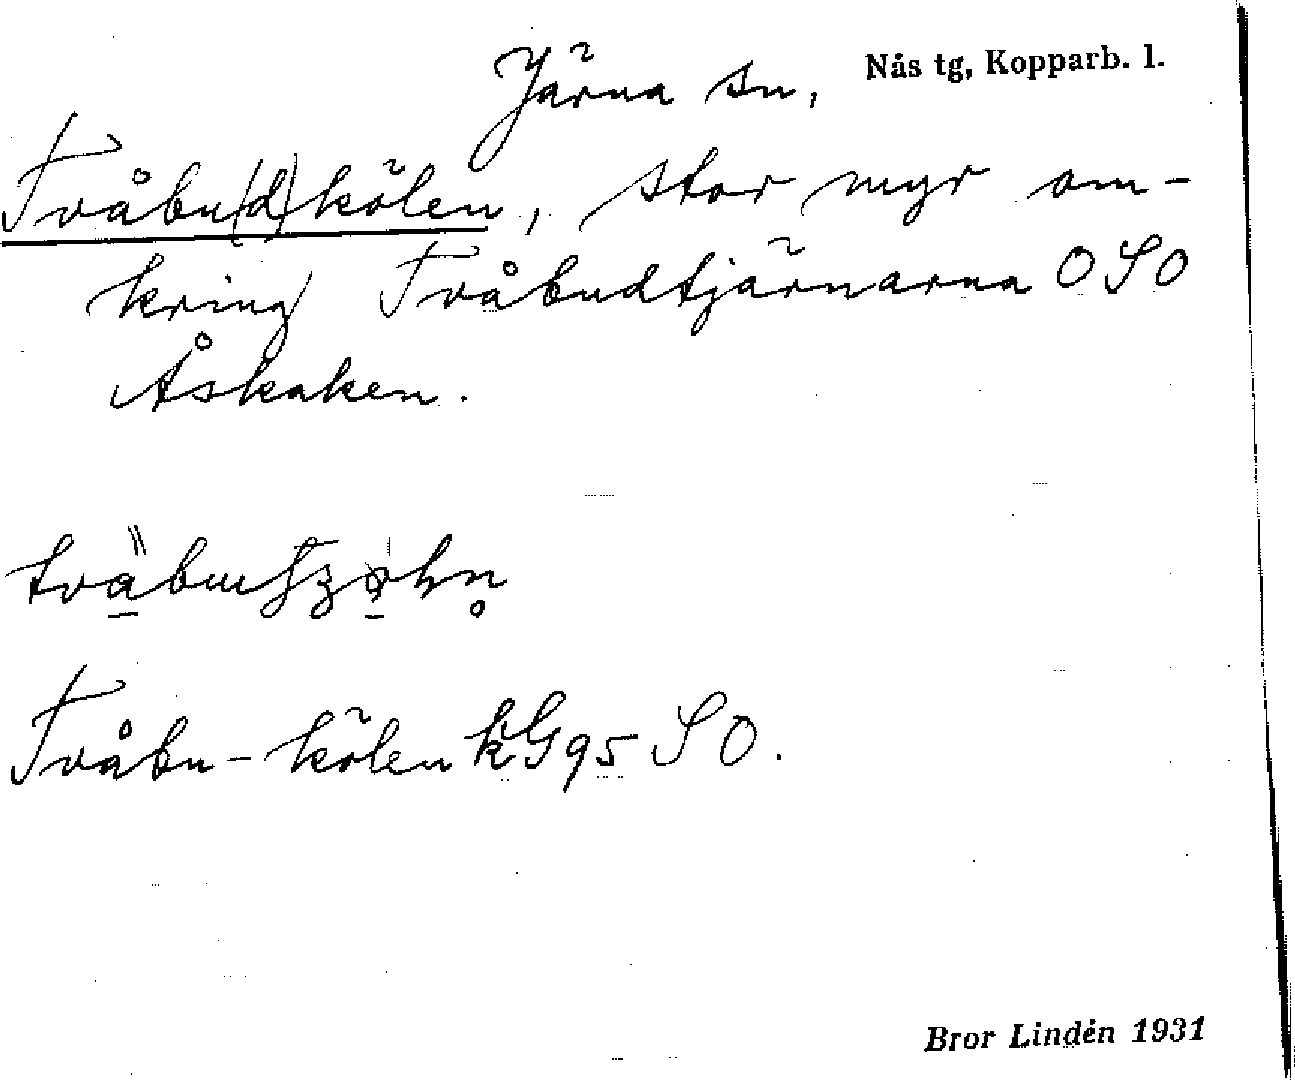 Järna sn, Nås tg, Kopparb. l.
Tvåbu(d)kölen, stor myr om-
kring Tvåbudtjärnarna OSO
Åskaken.
Tvåbu-kölen kG95 SO.
Bror Lindén 1931